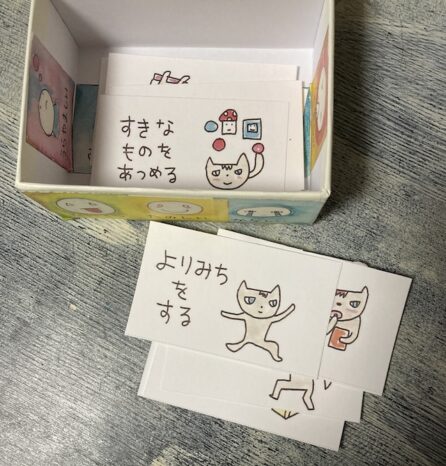 すきな
ものを
あつめる
よりみち
を
する